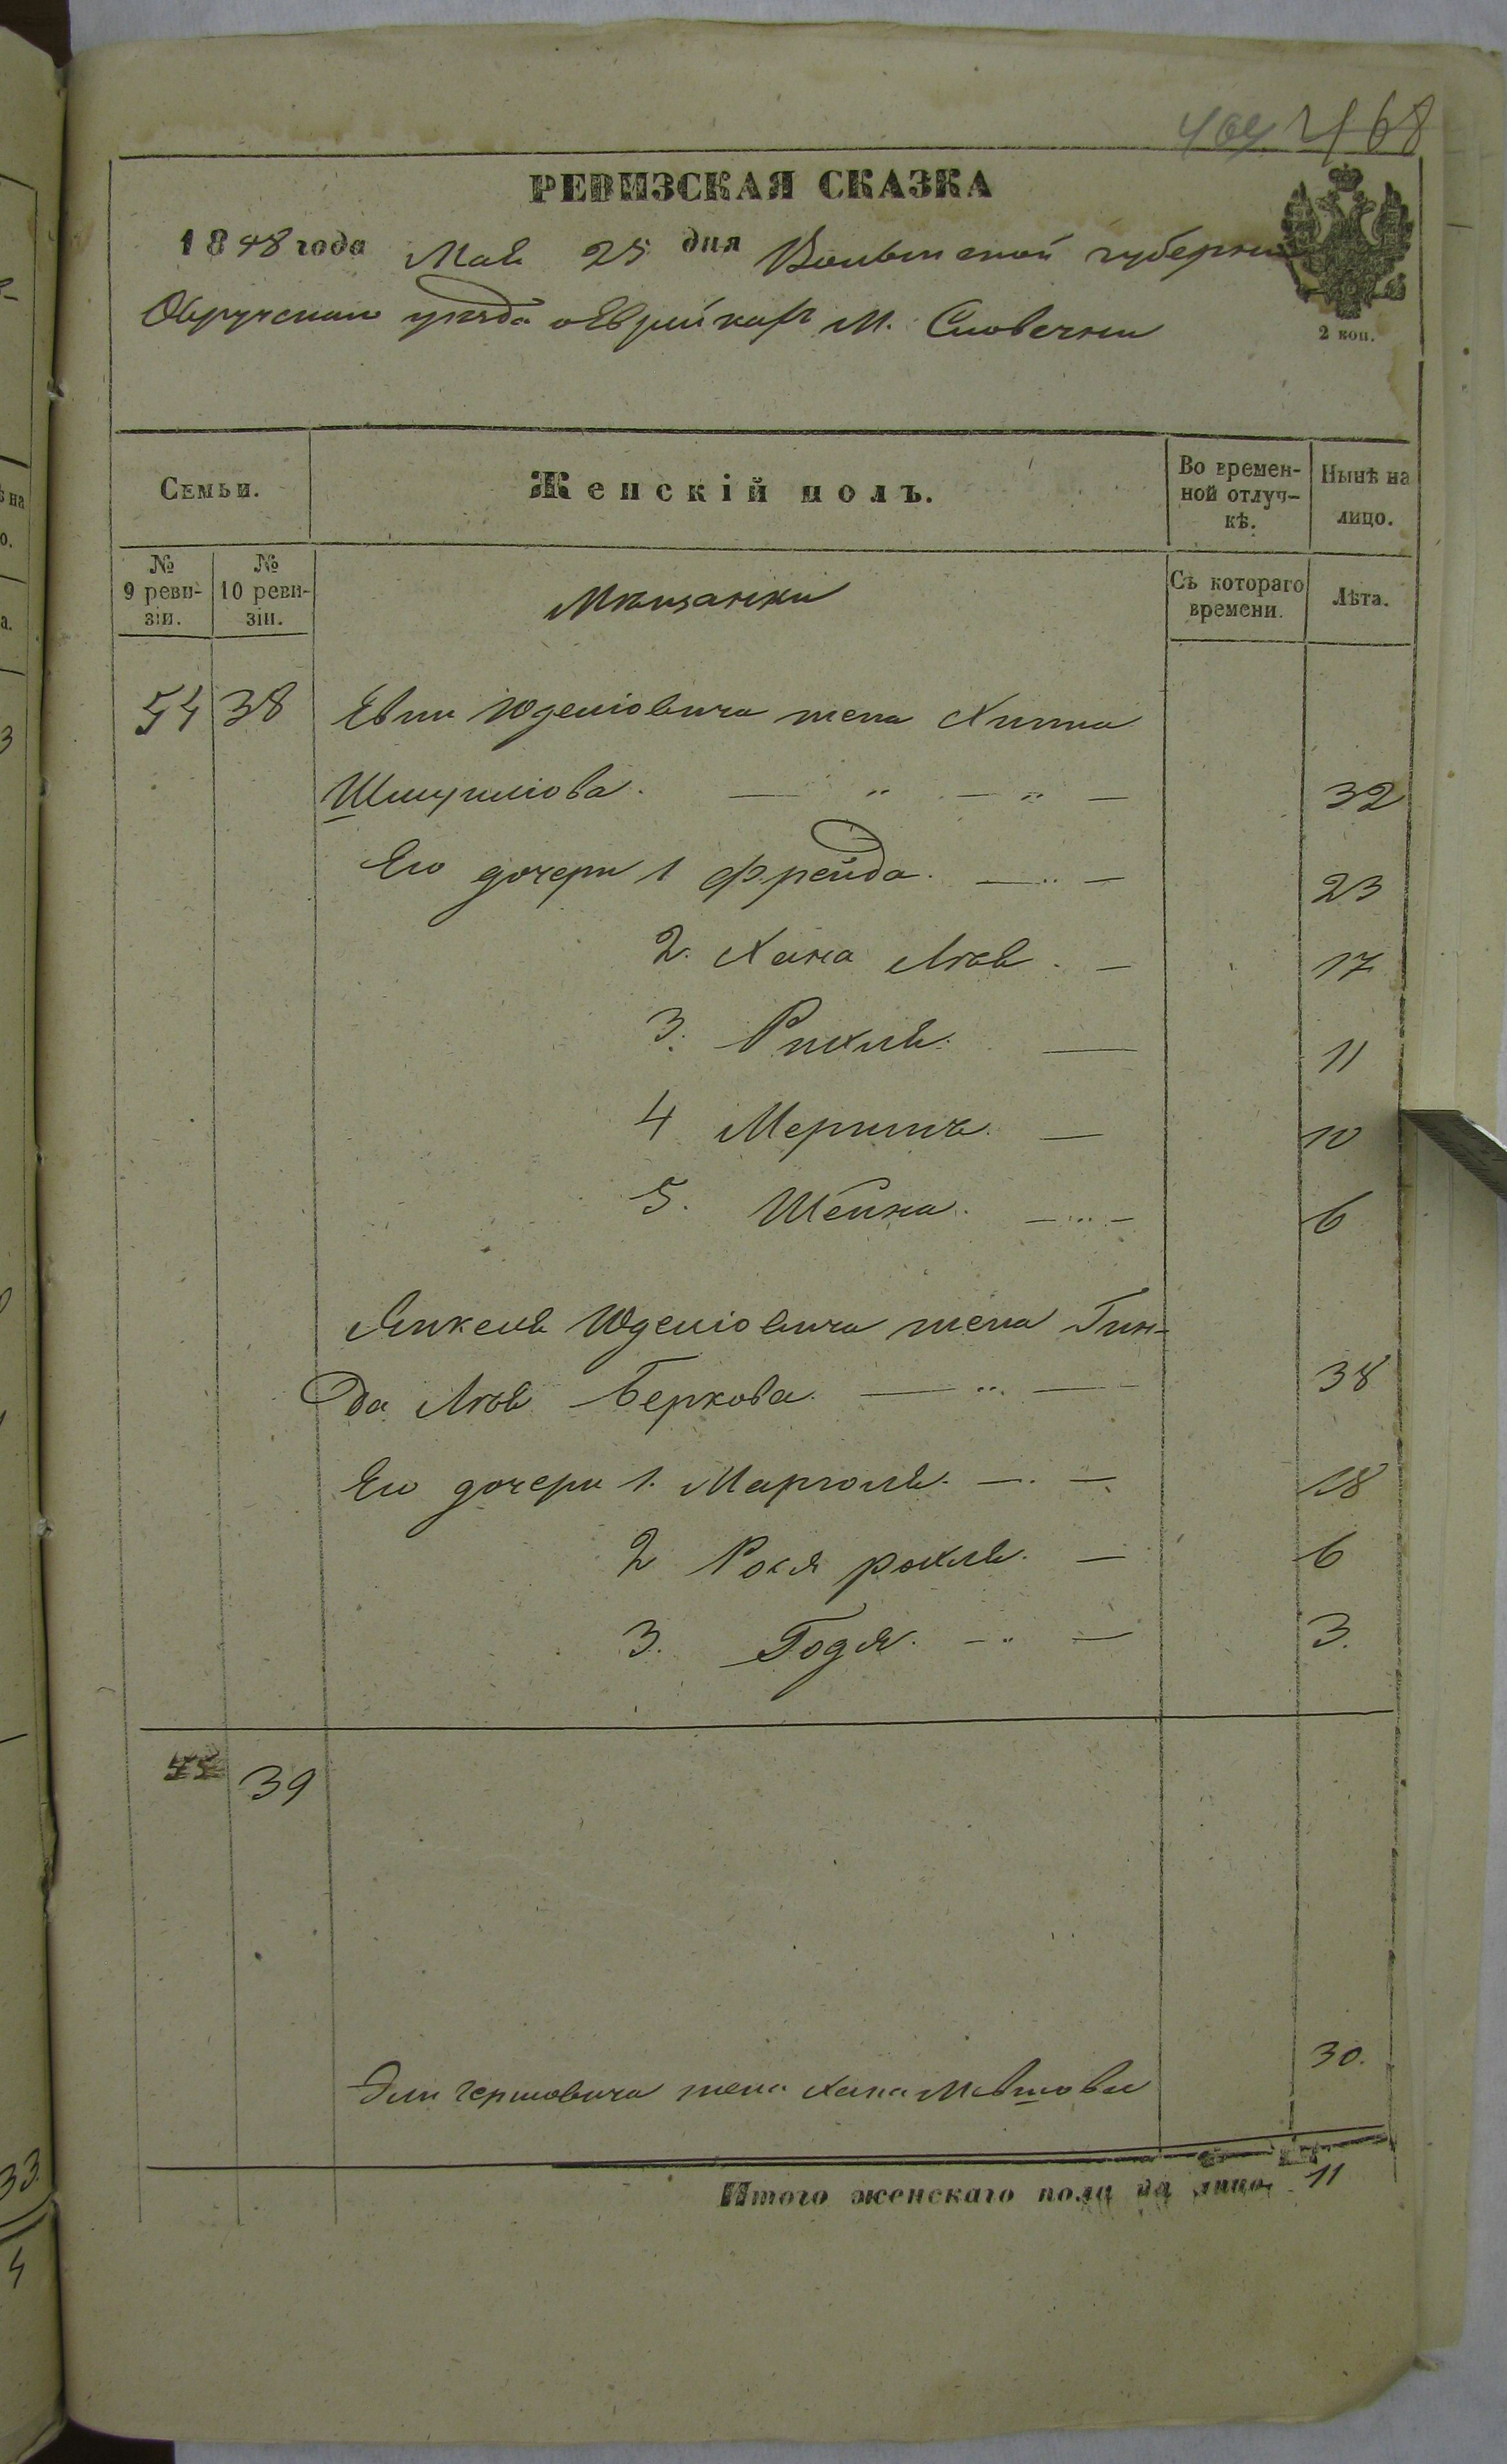 468
РЕВИЗСКАЯ СКАЗКА
1848 года Мая 25 дня Волынской губерніи
Овручскаго уѣзда о Еврейкахъ М. Словечны
2 коп.
Семьи.
Женскій полъ.
Во времен-
ной отлуч-
кѣ.
Нынѣ на
лицо.
№
9 реви-
зіи.
№
10 реви-
зіи.
Мѣщанки
Съ котораго
времени.
Лѣта.
54 38 Юделіовича жена
Шмуиліова. 32
Его дочери 1 Фрейда. 23
2. Хана Лѣя. 17
3. Рихля. 11
4 10
5. Шейна. 6
Янкеля Юделіовича жена Гин-
да Лѣя Беркова. 38
Его дочери 1. Марголя. 18
2 Рося рохля. 6
3. Годя. 3.
39
Эли Гершовича жена Хана Мевшова 30.
Итого женскаго пола на лицо 11